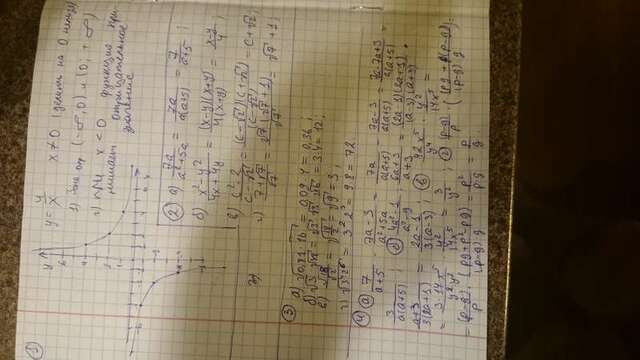 ① y = 4/x x ≠ 0 (делить на 0 нельзя)
1) Зна от (-∞, 0) и (0; +∞)
2) при x < 0 функция при
нимает отрицательное
значение
② а) 7a/(a²+5a) = 7a/(a(a+5)) = 7/(a+5);
б) (x²-y²)/(4x+4y) = (x-y)(x+y)/(4(x+y)) = (x-y)/4
в) (c²-2)/(c-√2) = (c-√2)(c+√2)/(c-√2) = c+√2;
г) (7+√7)/√7 = √7(√7+1)/√7 = √7+1;
③ а) √(0,81·16) = 0,09·4 = 0,36;
б) √3 √48 = √3 √3 √16 = 3·4 = 12;
в) √18/√2 = √(18/2) = √9 = 3;
г) √(3⁴2⁶) = 3²·2³ = 9·8 = 72
④ а) 7/(a+5) - (7a-3)/(a²+5a) = 7a/(a(a+5)) - (7a-3)/(a(a+5)) = (7a-7a+3)/(a(a+5))
3/(a(a+5)) б) (4a²-1)/(a²-9) : (6a+3)/(a+3) = (2a-1)(2a+1)/((a-3)(a+3)) ·
(a+3)/(3(2a+1)) = (2a-1)/(3(a-3)) в) 42x⁵/y⁴ · y²/14x⁵ =
= 3·14x⁵/(y²y²) · y²/14x⁵ = 3/y² г) (p-g)/p · (pg+p(p-g))/((p-g)g) =
= (p-g)/p · (pg+p²-pg)/((p-g)·g) = p²/(p·g) = p/g